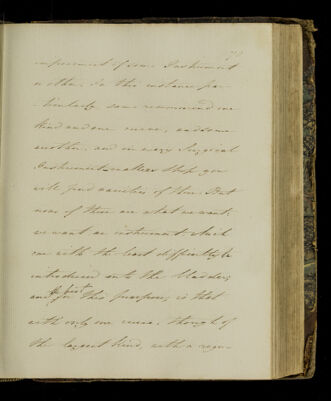 improvement of some Instrument
or other. In this instance par-
-ticularly some recommend one
kind and one curve, and some
another, and in every Surgical
Instrument-makers Shop you
will find varieties of them. But
none of these are what we want;
we want an instrument which
can with the least difficulty be
introduced into the Bladder;
and the best for this purpose, is that
with only one curve, though of
the largest kind, with a regu-